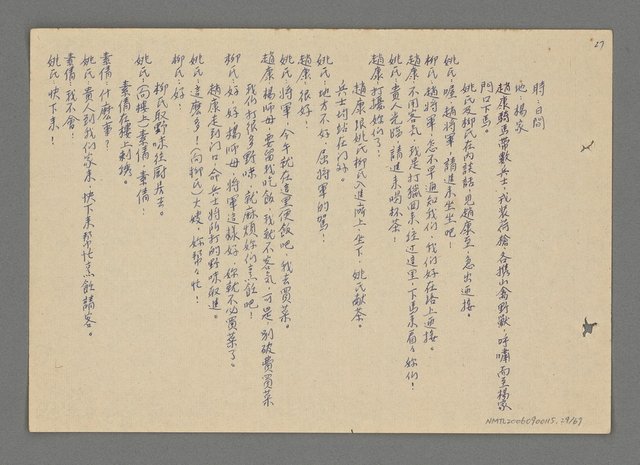 27
時：日間
地：楊家
趙康騎馬帶數兵士，戎裝荷槍，各携山禽野獸，呼嘯而至楊家
門口下馬。
姚氏及柳氏在內談話，見趙康至，急出迎接。
姚氏：喔，趙將軍，請進來坐坐吧！
柳氏：趙將軍，怎不早通知我們，我們好在路上迎接。
趙康：不用客氣，我是打獵回來經過這里，下馬來看々妳們！
姚氏：貴人光臨，請進來喝杯茶！
趙康：打擾妳們了。
趙康跟姚氏柳氏入進廳上坐下，姚氏献茶。
兵士均站在門外。
姚氏：地方不好，屈將軍的駕！
趙康：很好！
姚氏：將軍，今午就在這里便飯吧，我去買菜。
趙康：楊師母，要留我吃飯，我就不客氣，可是，別破費買菜
我們打很多野味，就麻煩妳們煮飯吧！
柳氏：好，好，楊師母，將軍這樣好，妳就不必買菜了。
趙康走到門口，命兵士將所打的野味取進。
姚氏：這麼多！（向柳氏）大嫂，妳幫々忙！
柳氏：好！
柳氏取野味往厨房去。
姚氏：（向樓上）素倩，素倩！
素倩在樓上刺綉。
素倩：什麼事？
姚氏：貴人到我們家來，快下來幫忙煮飯請客。
素倩：我不會！
姚氏：快下來！
NMTL20060900115, 29/67